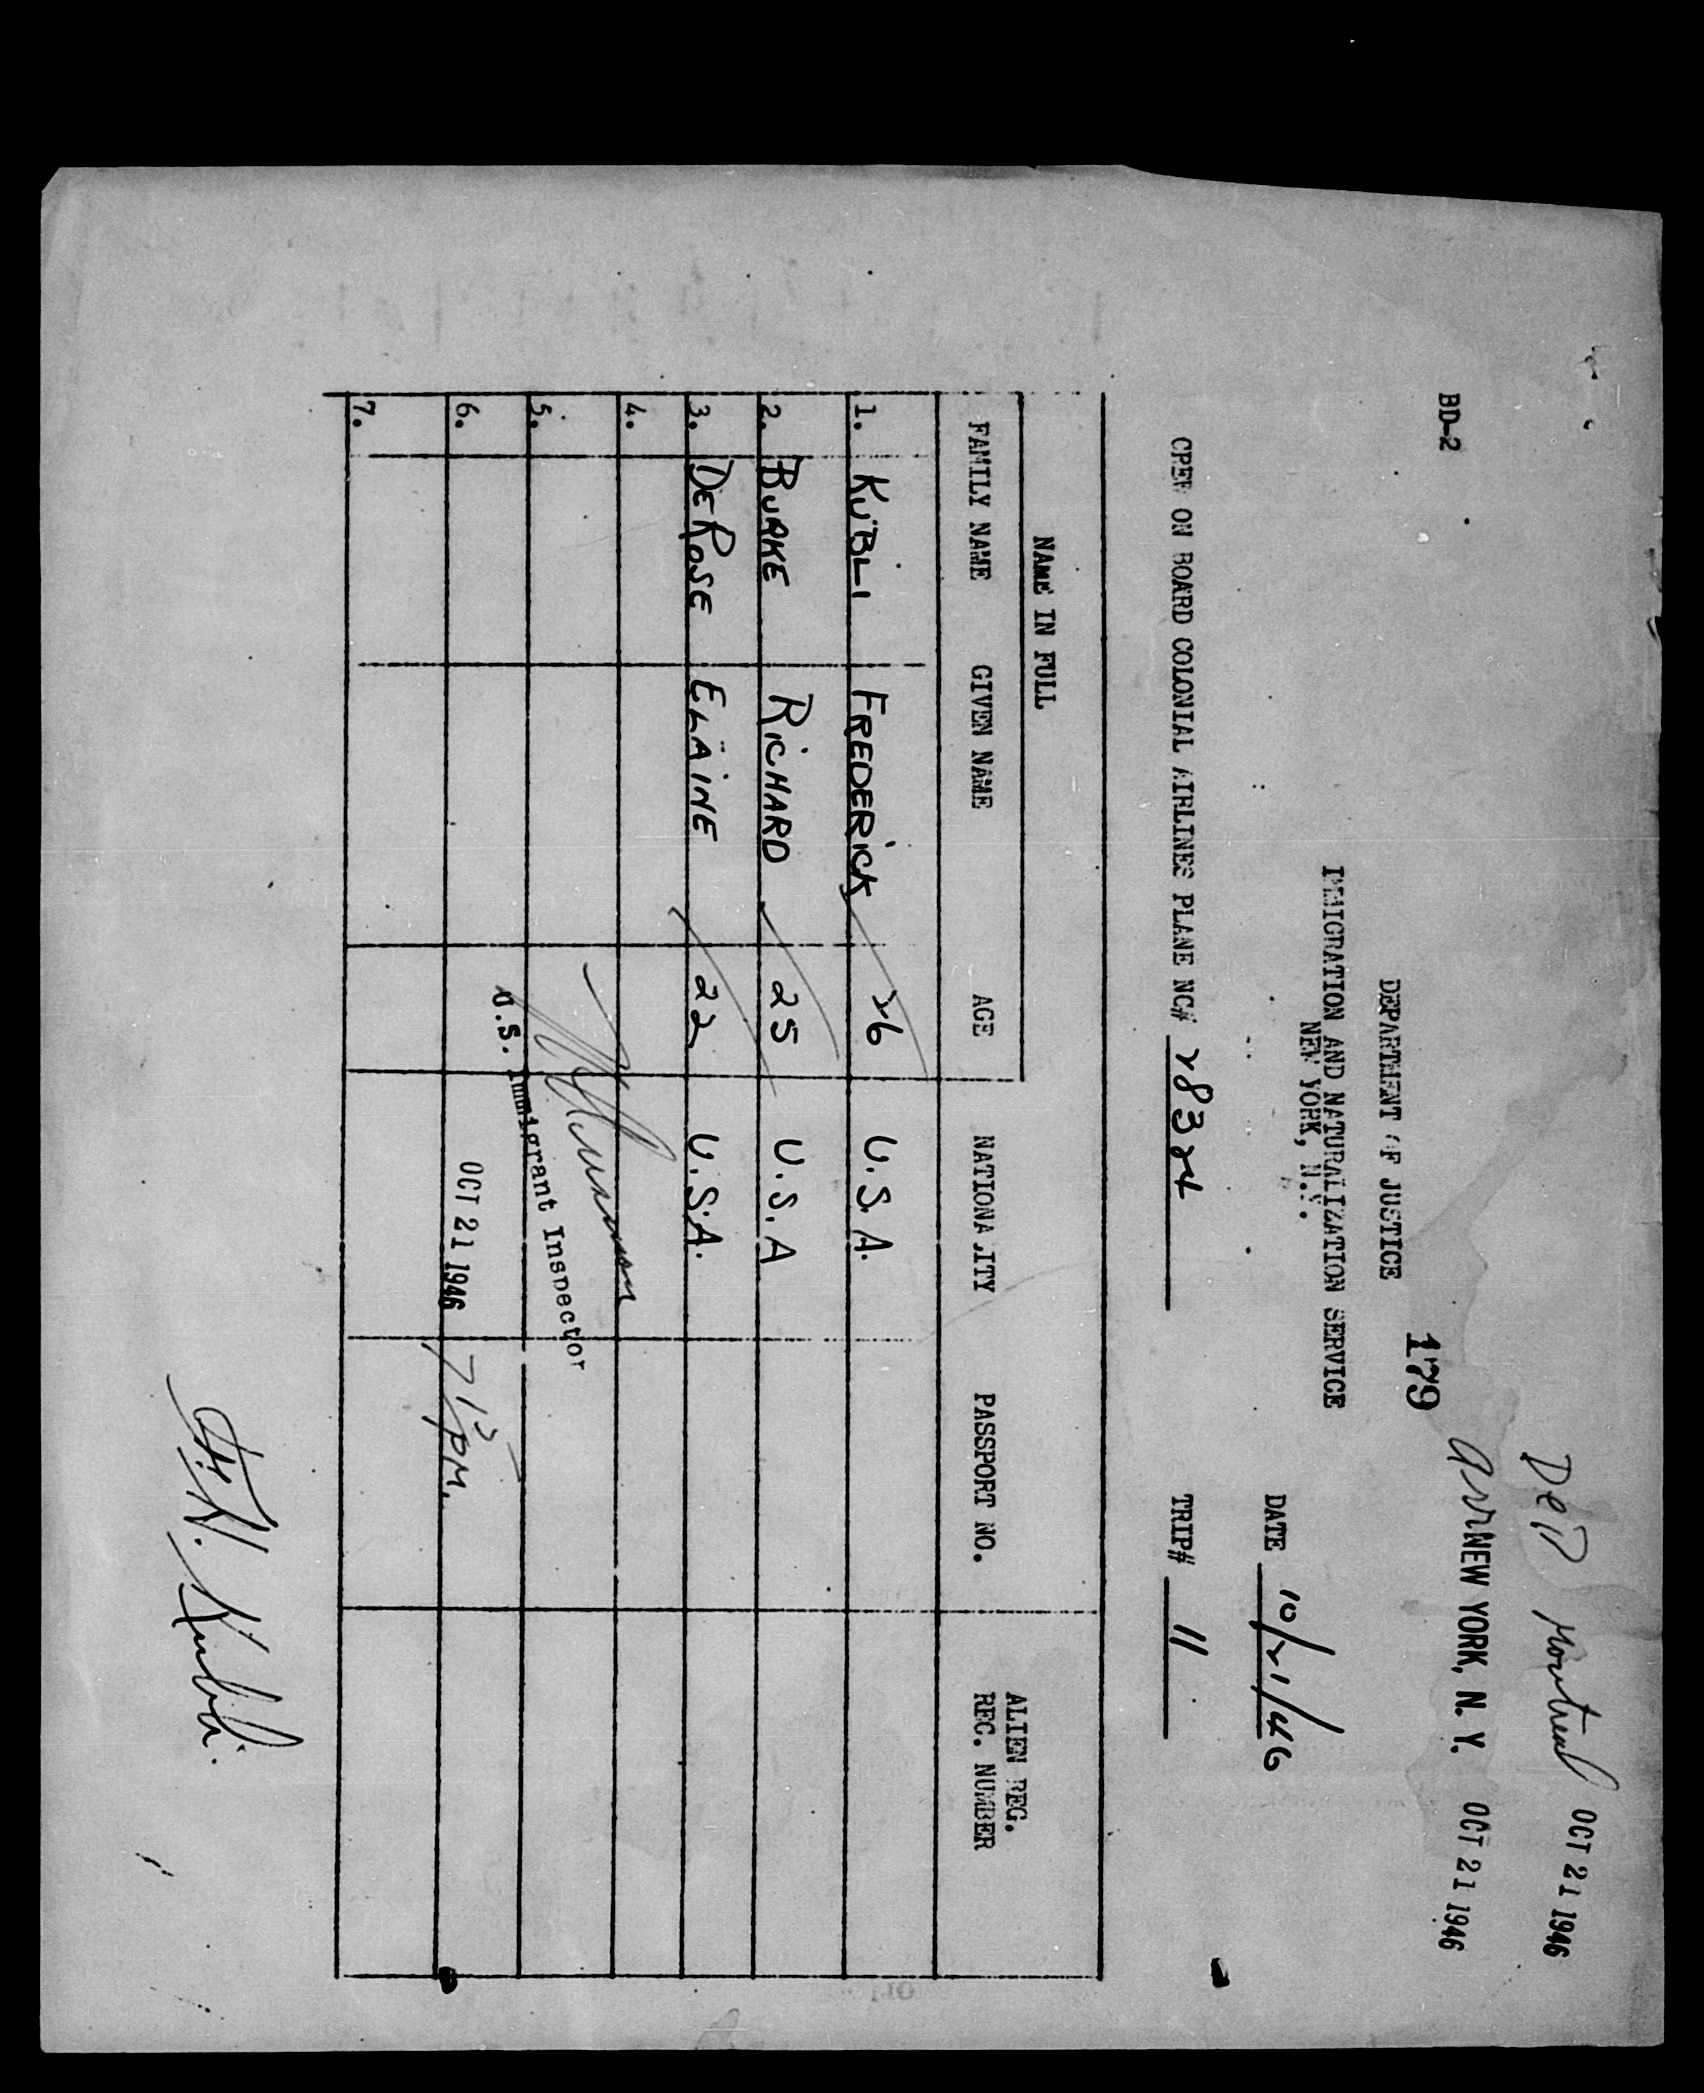 Dep Montreal OCT 21 1946
arr NEW YORK, N. Y. OCT 21 1946
BD-2
179
DEPARTMENT OF JUSTICE
IMMIGRATION AND NATURALIZATION SERVICE
NEW YORK, N.Y.
DATE 10/21/46
CREW ON BOARD COLONIAL AIRLINES PLANE NC# 28324 TRIP# 11
NAME IN FULL
ALIEN REG.
FAMILY NAME GIVEN NAME AGE NATIONALITY PASSPORT NO. REC. NUMBER
1. KUBLI FREDERICK 26 U.S.A.
2. BURKE RICHARD 25 U.S.A
3. DEROSE ELAINE 22 U.S.A.
4.
5.
U.S. Immigrant Inspector
6. OCT 21 1946 PM.
7.
Kubli.